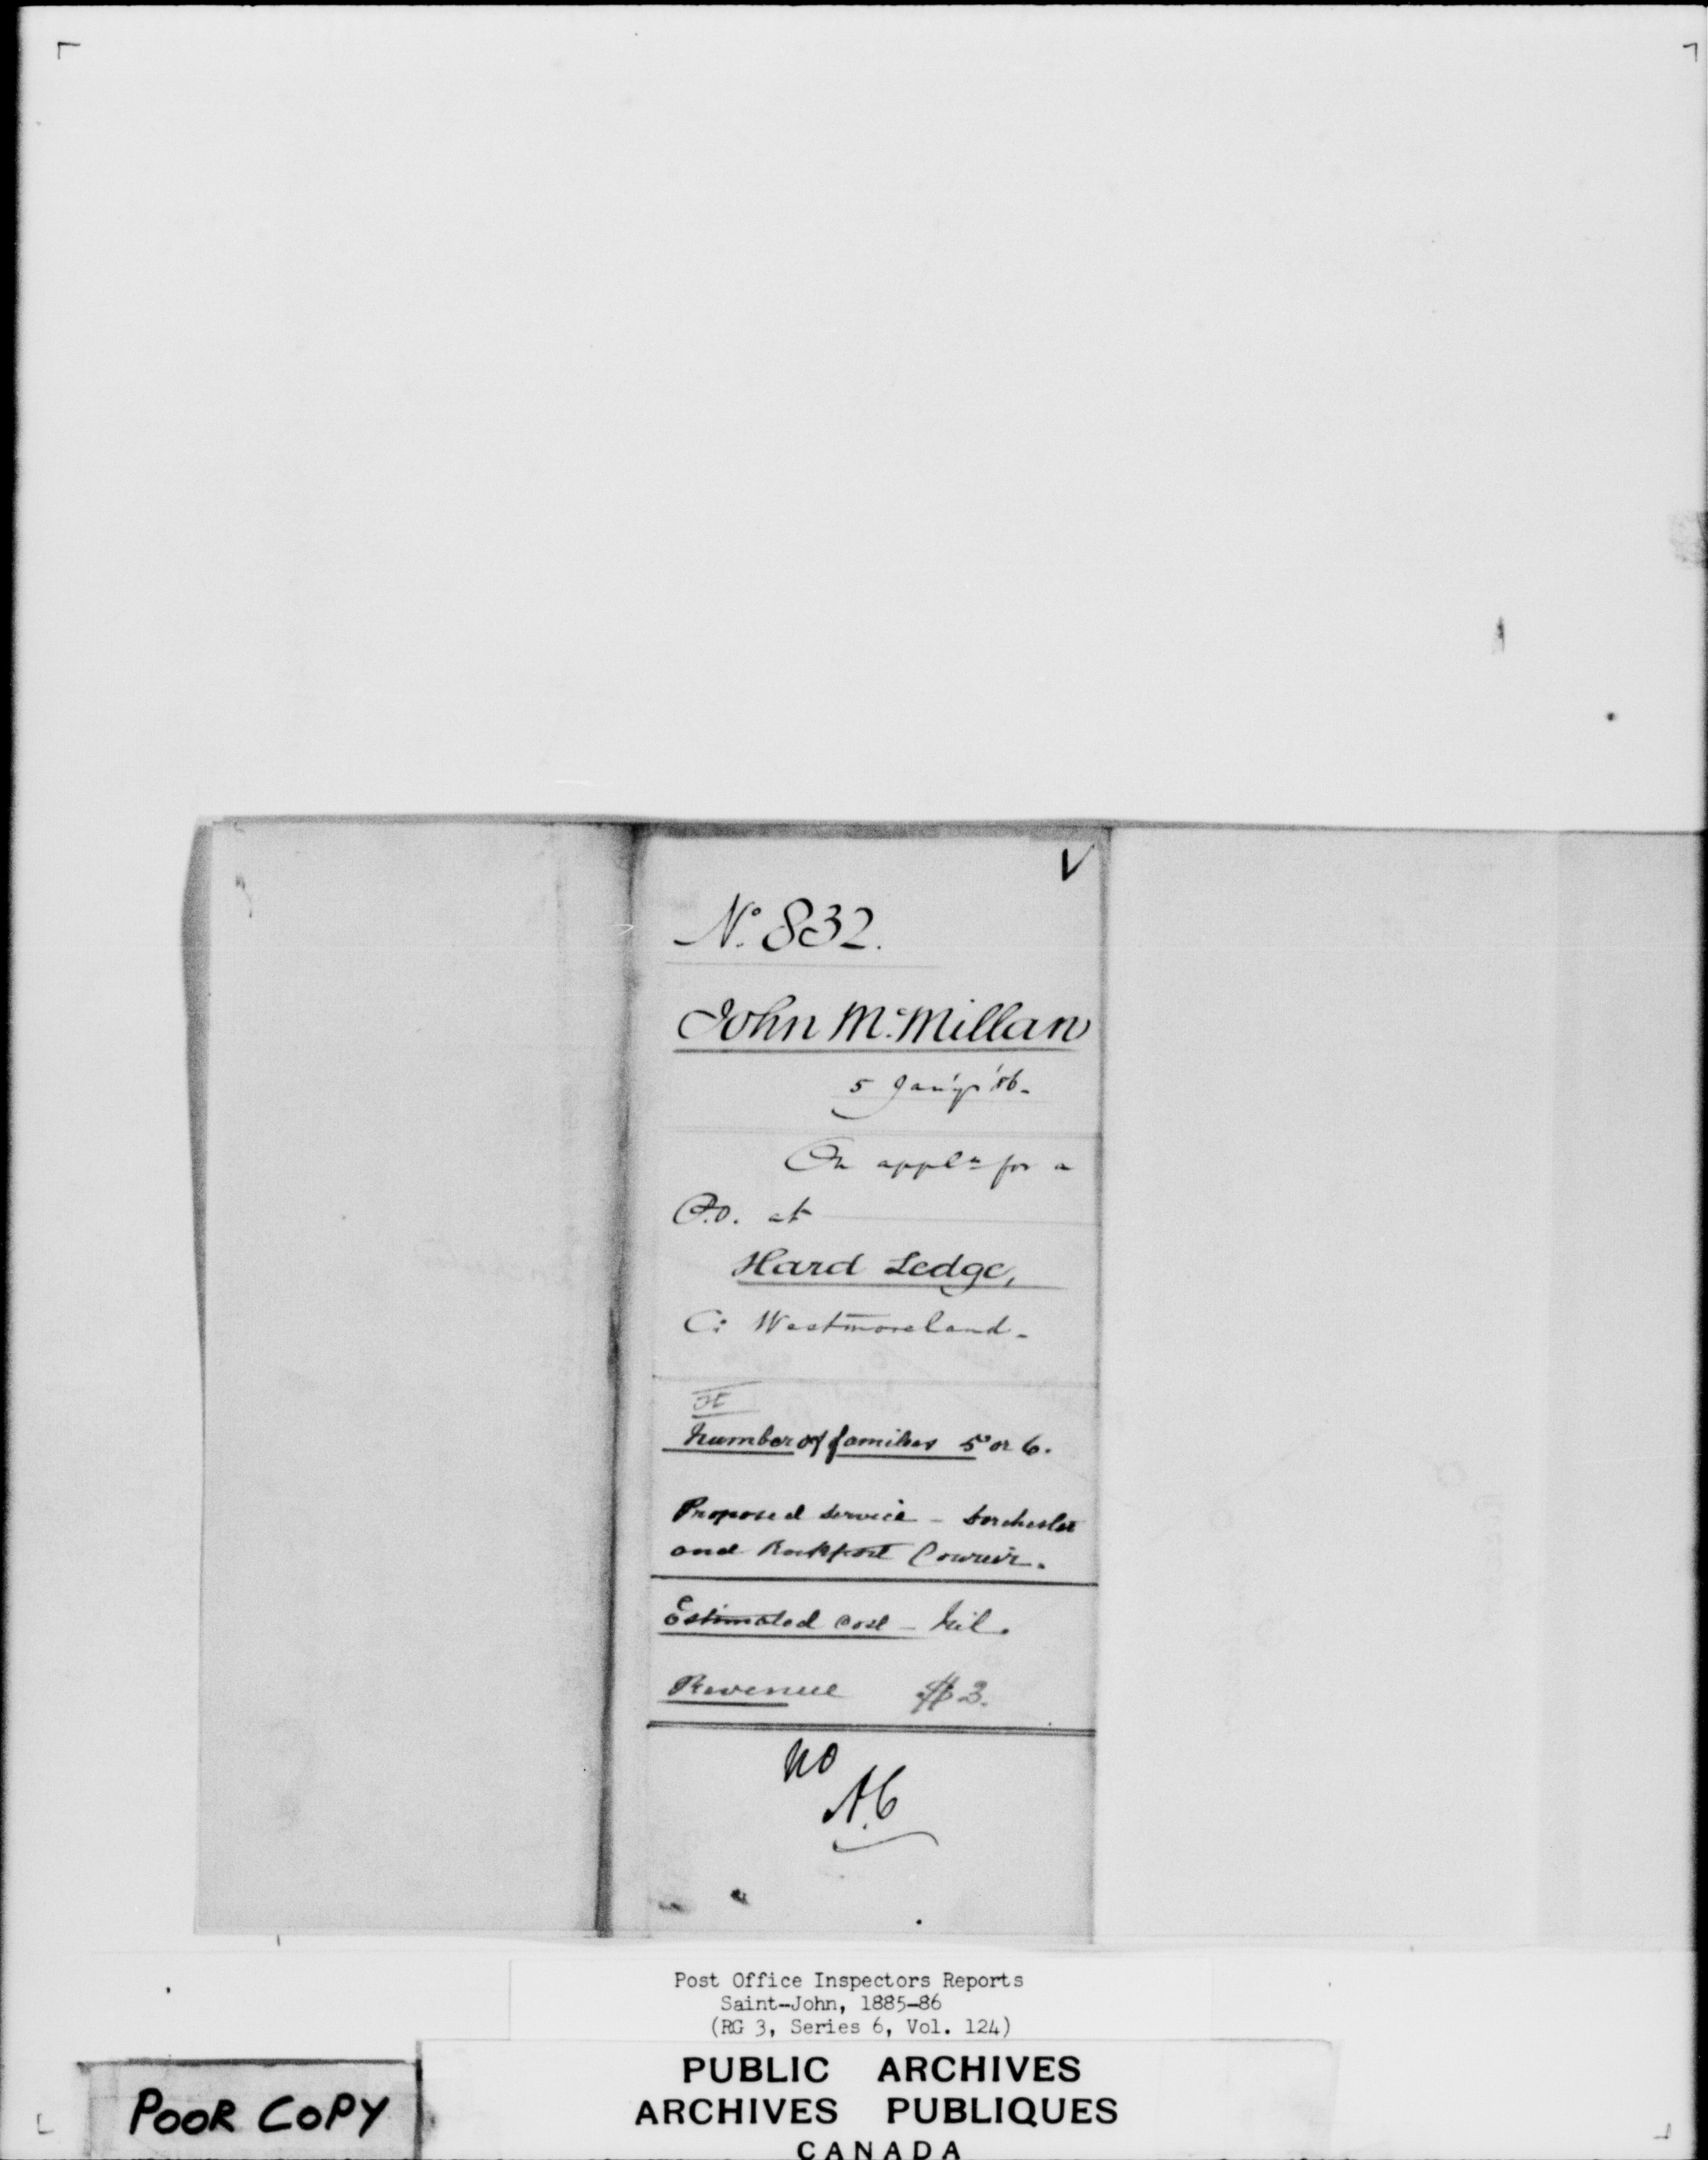 V
No. 832.
John McMillan
5 Jan'y '86-
On appln for a
P.O. at
Hard Ledge,
C: Westmoreland-
Number of families 5 or 6.
Proposed service - Dorchester
and Rockport Courier.
Estimated cost - Nil.
Revenue $3.
No
A.C
Post Office Inspectors Reports
Saint-John, 1885-86
(RG 3, Series 6, Vol. 124)
PUBLIC ARCHIVES
ARCHIVES PUBLIQUES
CANADA
POOR COPY